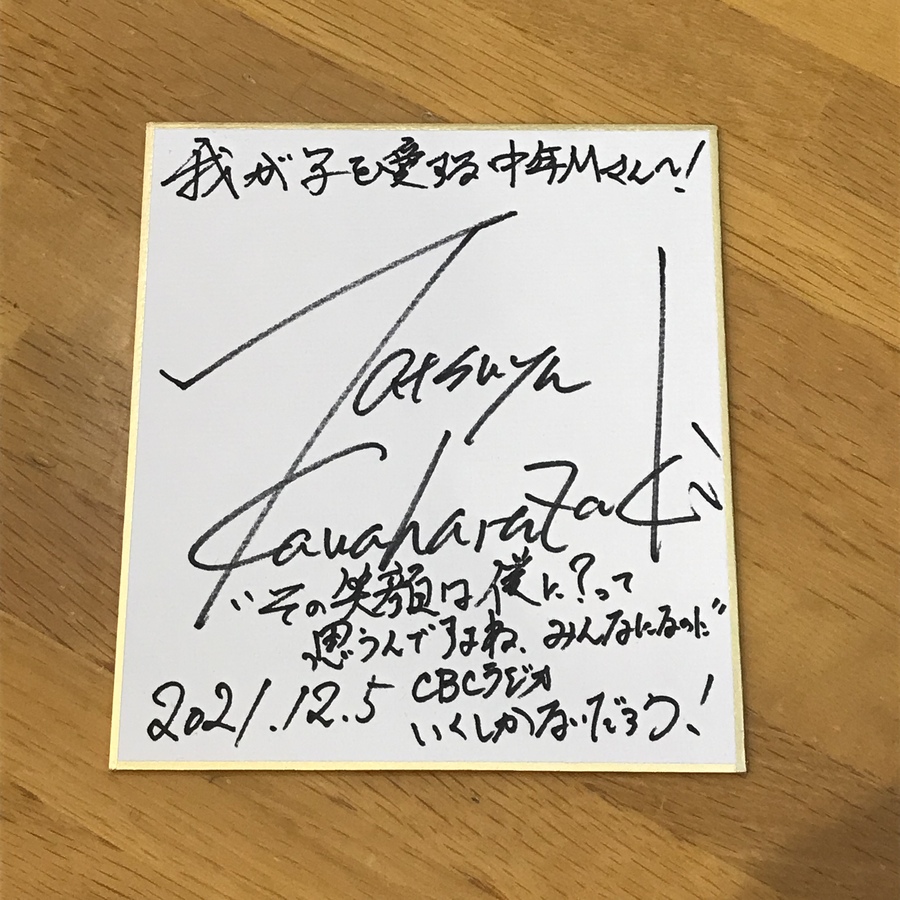 我が子を愛する中年Mさんへ!
Tatsuya
Kawaharazaki
"その笑顔は僕に?って
思うんですよね、みんなになのに"
2021.12.5 CBCラジオ
いくしかないだろう!